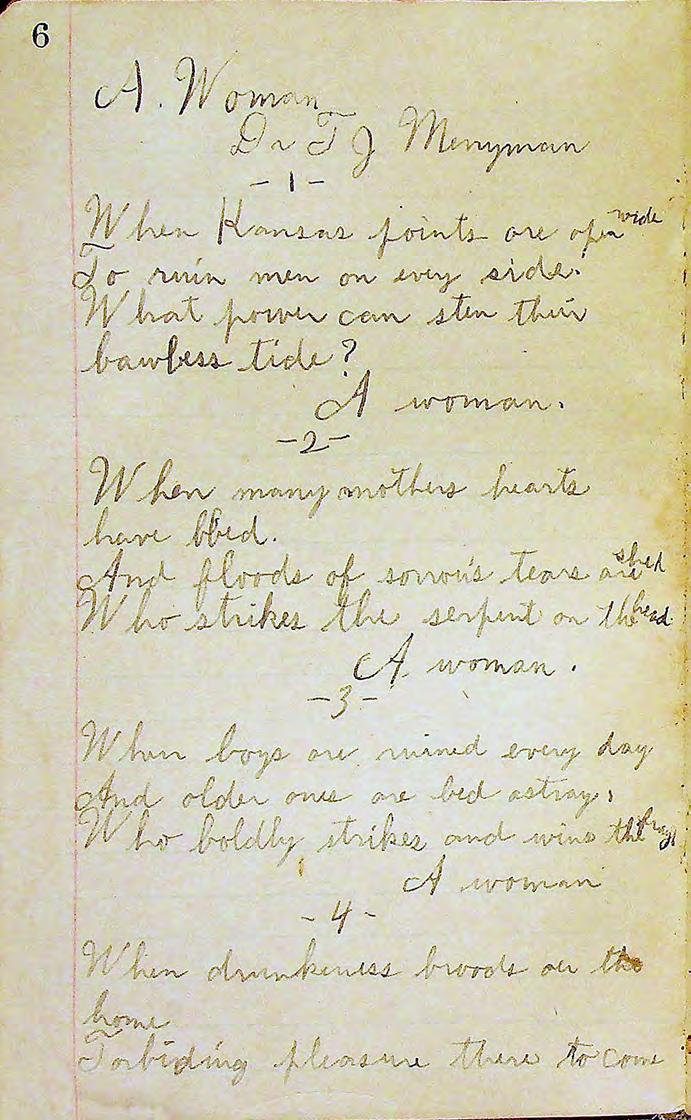 6
A. Woman
Dr T J Merryman
-1-
When Kansas joints are open wide
To ruin men on every side.
What power can stem their
lawless tide?
A woman.
-2-
When many mothers hearts
have bled.
And floods of sorrow's tears are shed
Who strikes the serpent on the head
A woman.
-3-
When boys are ruined every day
And older ones are led astray,
Who boldly strikes and wins the fray
A woman
-4-
When drunkeness broods oer the
home
Forbiding pleasure there to come